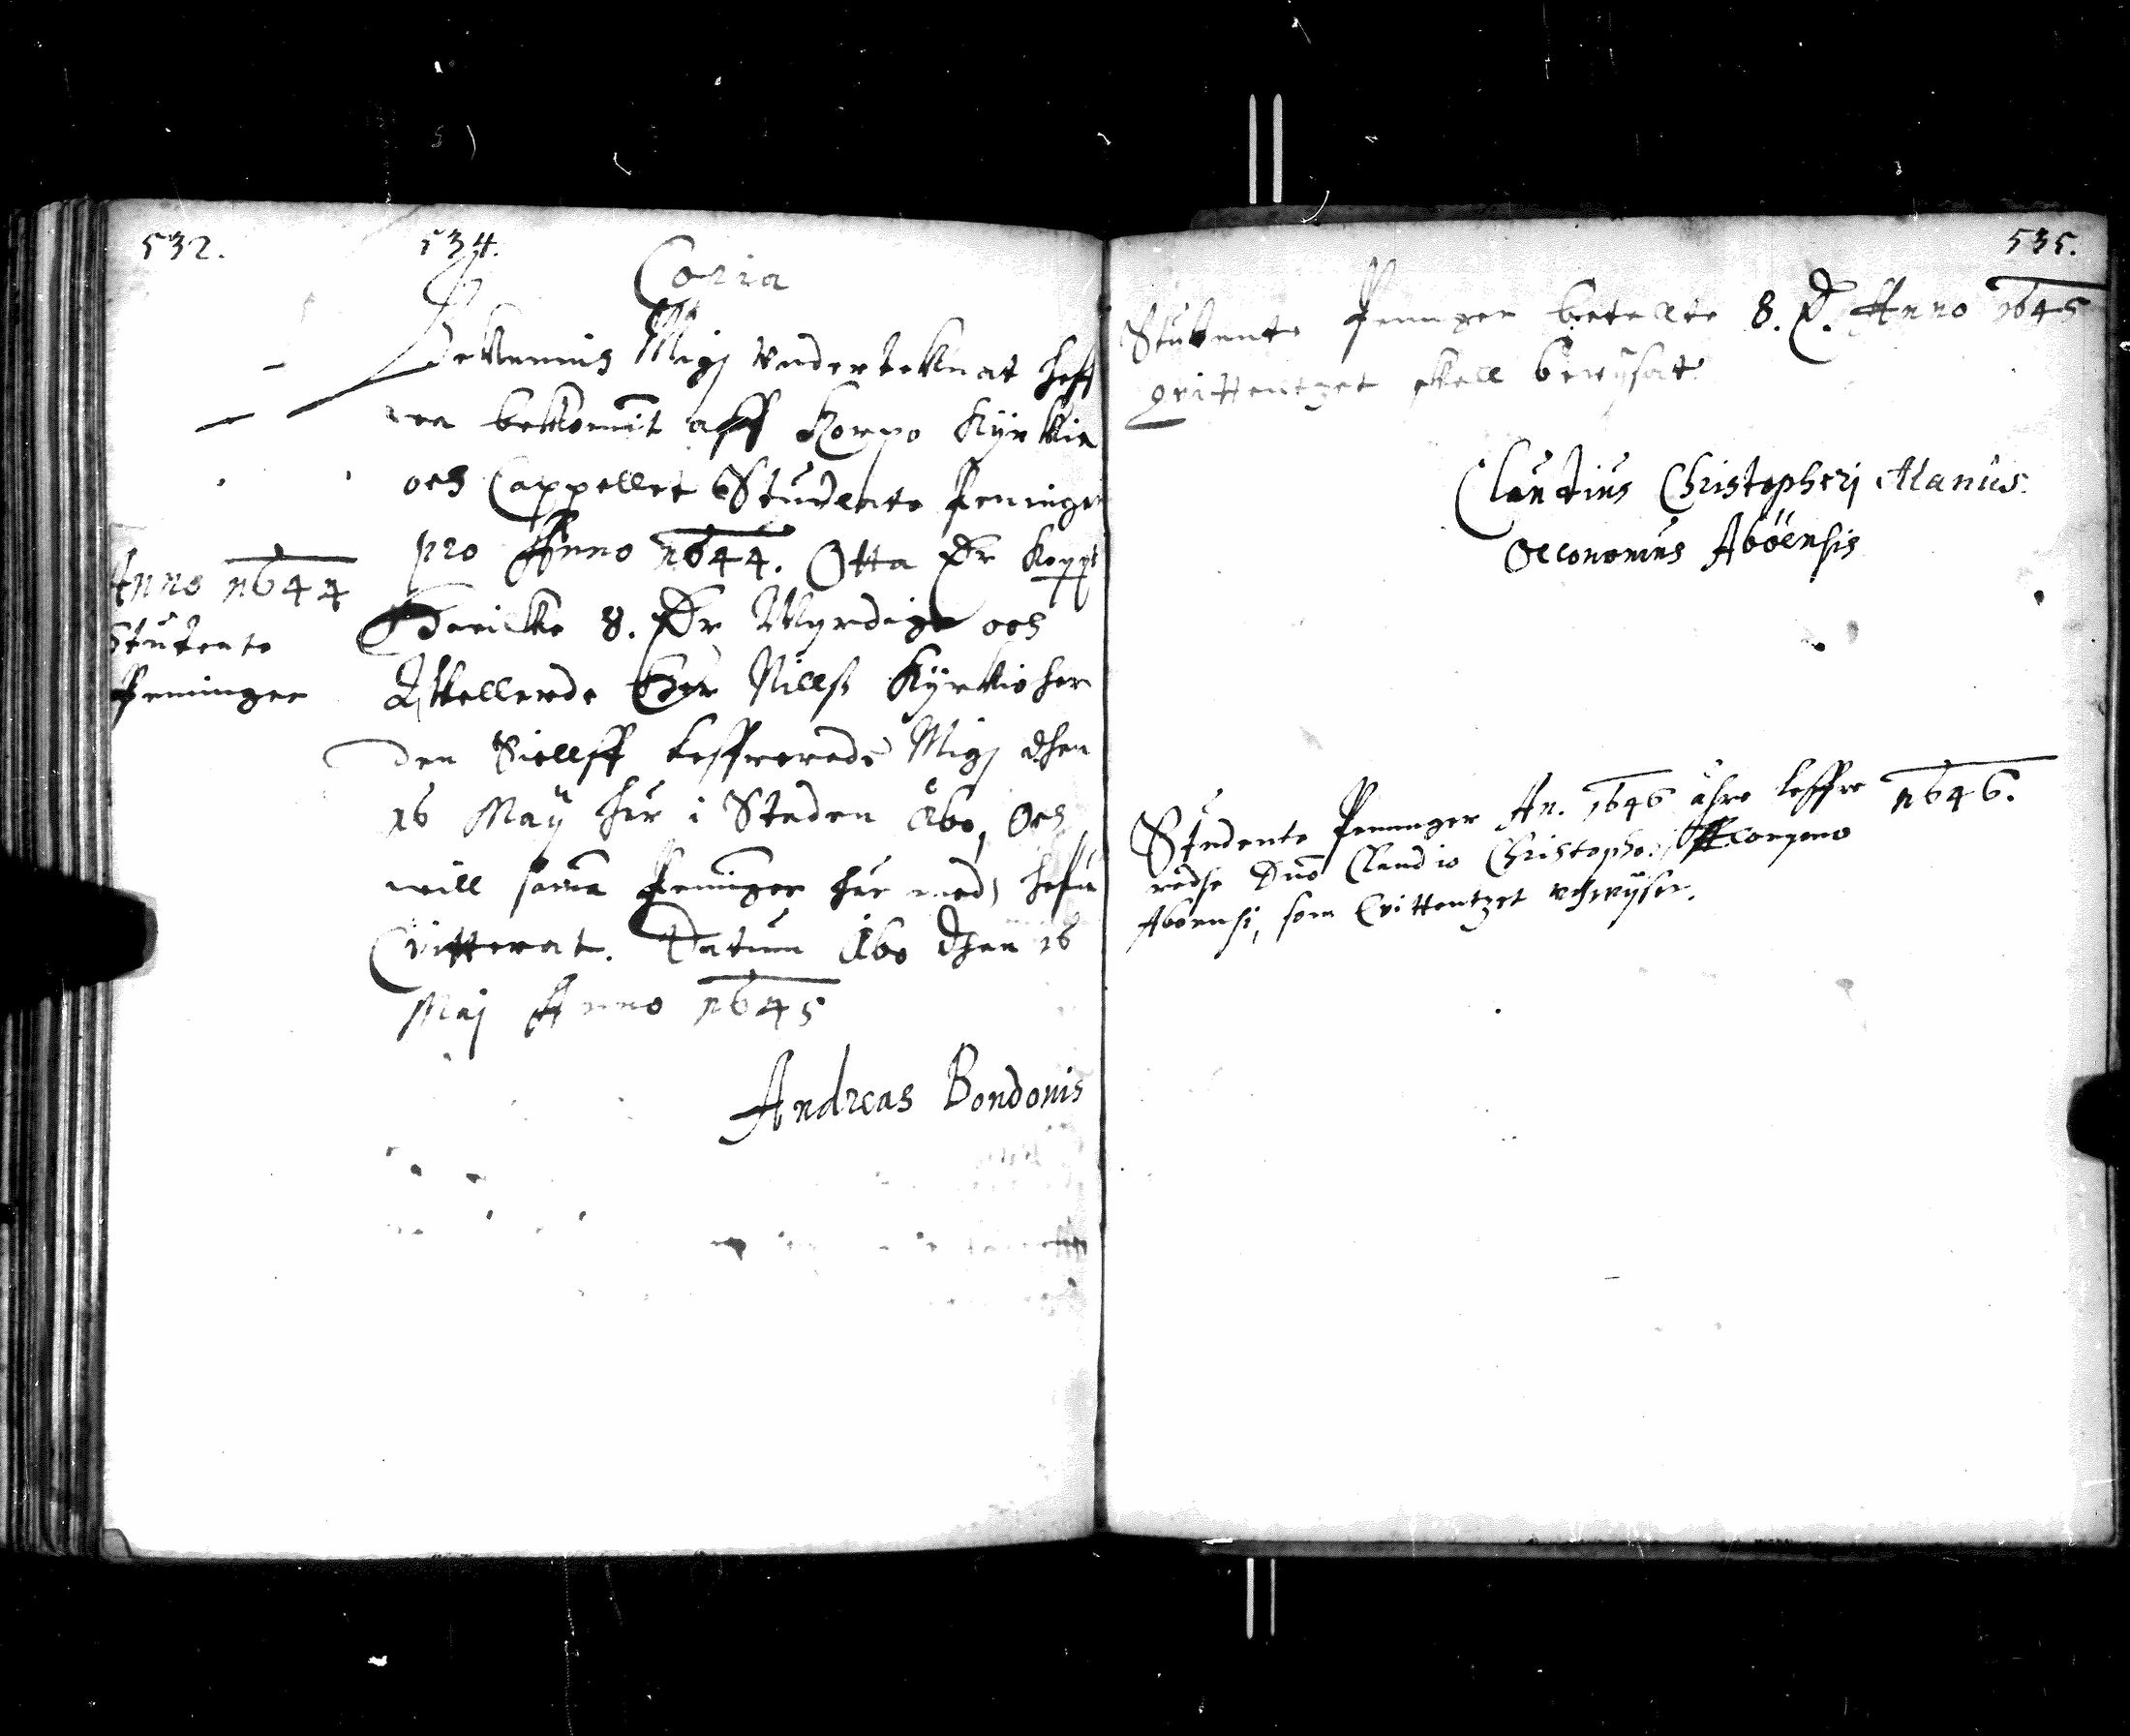 532.
534.
Copia
Bekennus Migh vnderteknat heff
wa bekommit aff Korpo Kyrkia
och Cappellet Studente Peninger
pro Anno 1644. Otta Dr Koppt
Huilke 8. Dr Wyrdige och
Wellerde Her Nillss Kyrkioher
den Sielff leffwerede Migh dhen
16 Maÿ här i Staden Åbo, Och
will samma Peninger här med hafua
Quitterat. Datum Åbo dhen 16
Maj Anno 1645
Andreas Bondonis
Anno 1644
Studente
Peninger
535.
Studente Peninger betalte 8. D. Anno 1645
Qvittentzet skall bewÿsat
Claudius Christopheri Alanus.
Oeconomus Aböensis
Studente Peninger An. 1646 ähre leffre 1646.
redhe Dno Claudio Christopheri
Aboensi, som Qvittentzet vthwÿser.